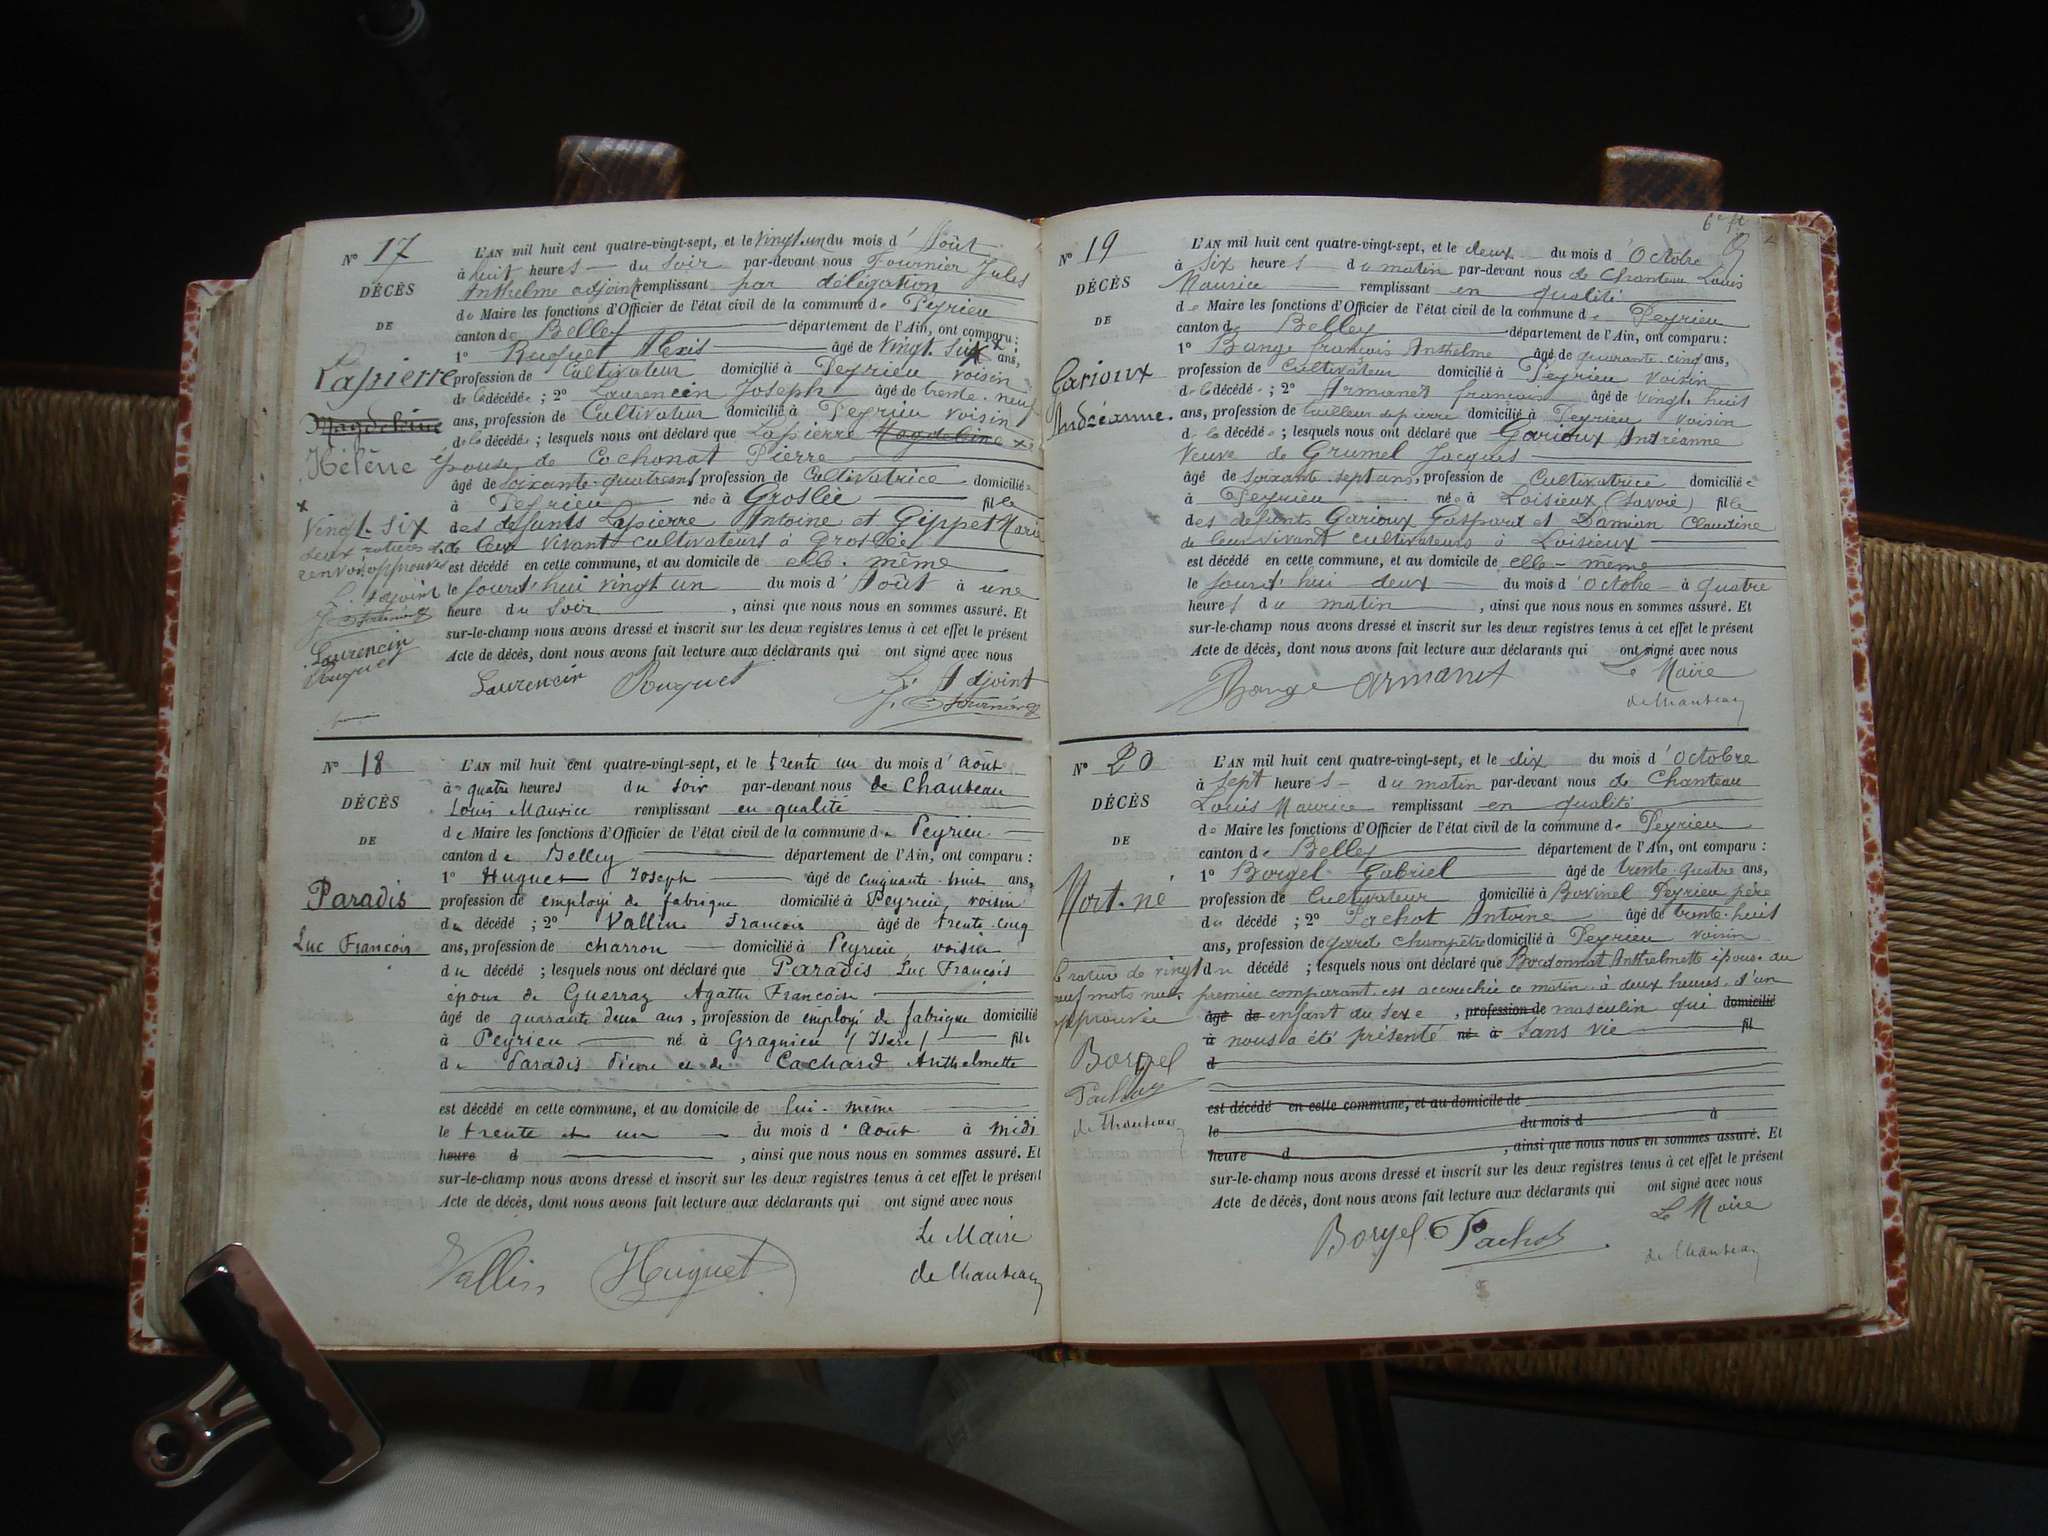 N° 17
DÉCÈS
DE
Lapierre
Magdeleine
Hélène
x
Vingt-six
deux ratures et
renvoi approuvés
L'adjoint
Laurencin
Ruguet
L'AN mil huit cent quatre-vingt-sept, et le vingt-un du mois d'Août
à huit heures du soir par-devant nous Fournier Jules
Anthelme adjoint remplissant par délégation
de Maire les fonctions d'Officier de l'état civil de la commune de Peyrieu
canton de Belley département de l'Ain, ont comparu :
1° Ruguet Alexis âgé de vingt six x ans,
profession de Cultivateur domicilié à Peyrieu voisin
de la décédée ; 2° Laurencin Joseph âgé de trente-neuf
ans, profession de Cultivateur domicilié à Peyrieu voisin
de la décédée ; lesquels nous ont déclaré que Lapierre Magdeleine x
épouse de Cochonat Pierre
âgé de soixante-quatre ans profession de Cultivatrice domiciliée
à Peyrieu née à Groslée fille
des défunts Lapierre Antoine et Gippet Marie
de leur vivant cultivateurs à Groslée
est décédé en cette commune, et au domicile de elle-même
le jourd'hui vingt un du mois d'Août à une
heure du soir , ainsi que nous nous en sommes assuré. Et
sur-le-champ nous avons dressé et inscrit sur les deux registres tenus à cet effet le présent
Acte de décès, dont nous avons fait lecture aux déclarants qui ont signé avec nous
Laurencin Ruguet L'Adjoint
N° 18
DÉCÈS
DE
Paradis
Luc François
L'AN mil huit cent quatre-vingt-sept, et le trente un du mois d'août
à quatre heures du soir par-devant nous de Chanteau
Louis Maurice remplissant en qualité
de Maire les fonctions d'Officier de l'état civil de la commune de Peyrieu
canton de Belley département de l'Ain, ont comparu :
1° Huguet Joseph âgé de cinquante-huit ans,
profession de employé de fabrique domicilié à Peyrieu voisin
du décédé ; 2° Vallin François âgé de trente-cinq
ans, profession de charron domicilié à Peyrieu, voisin
du décédé ; lesquels nous ont déclaré que Paradis Luc François
époux de Guerraz Agathe Françoise
âgé de quarante deux ans, profession de employé de fabrique domicilié
à Peyrieu né à Gragnieu (Isère) fils
de Paradis Pierre et de Cachard Anthelmette
est décédé en cette commune, et au domicile de lui-même
le trente et un du mois d'août à midi
heure d , ainsi que nous nous en sommes assuré. Et
sur-le-champ nous avons dressé et inscrit sur les deux registres tenus à cet effet le présent
Acte de décès, dont nous avons fait lecture aux déclarants qui ont signé avec nous
Le Maire
Vallin Huguet de Chanteau
N° 19
DÉCÈS
DE
Garioux
Andréanne.
L'AN mil huit cent quatre-vingt-sept, et le deux du mois d'Octobre
à six heures du matin par-devant nous de Chanteau Louis
Maurice remplissant en qualité
de Maire les fonctions d'Officier de l'état civil de la commune de Peyrieu
canton de Belley département de l'Ain, ont comparu :
1° Bange françois Anthelme âgé de quarante-cinq ans,
profession de Cultivateur domicilié à Peyrieu voisin
de la décédée ; 2° Armanet françois âgé de vingt-huit
ans, profession de tailleur de pierre domicilié à Peyrieu voisin
de la décédée ; lesquels nous ont déclaré que Garioux Andréanne
Veuve de Grumel Jacques
âgé de soixante-sept ans, profession de Cultivatrice domiciliée
à Peyrieu née à Loisieux (Savoie) fille
des défunts Garioux Gaspard et Damian Claudine
de leur vivant cultivateurs à Loisieux
est décédé en cette commune, et au domicile de elle-même
le jourd'hui deux du mois d'Octobre à quatre
heures du matin , ainsi que nous nous en sommes assuré. Et
sur-le-champ nous avons dressé et inscrit sur les deux registres tenus à cet effet le présent
Acte de décès, dont nous avons fait lecture aux déclarants qui ont signé avec nous
Bange Armanet Le Maire
de Chanteau
N° 20
DÉCÈS
DE
Mort-né
la rature de vingt
neuf mots nuls
approuvée
Borgel
Pachot
de Chanteau
L'AN mil huit cent quatre-vingt-sept, et le dix du mois d'Octobre
à sept heures du matin par-devant nous de Chanteau
Louis Maurice remplissant en qualité
de Maire les fonctions d'Officier de l'état civil de la commune de Peyrieu
canton de Belley département de l'Ain, ont comparu :
1° Borgel Gabriel âgé de trente-quatre ans,
profession de Cultivateur domicilié à Bovinel Peyrieu père
du décédé ; 2° Pachot Antoine âgé de trente-huit
ans, profession de garde champêtre domicilié à Peyrieu voisin
du décédé ; lesquels nous ont déclaré que Bordonnat Anthelmette épouse du
premier comparant est accouchée ce matin à deux heures, d'un
âgé de enfant du sexe , profession de masculin qui domicilié
à nous a été présenté né à sans vie fil
d
est décédé en cette commune, et au domicile de
le du mois d à
heure d , ainsi que nous nous en sommes assuré. Et
sur-le-champ nous avons dressé et inscrit sur les deux registres tenus à cet effet le présent
Acte de décès, dont nous avons fait lecture aux déclarants qui ont signé avec nous
Le Maire
Borgel Pachot de Chanteau